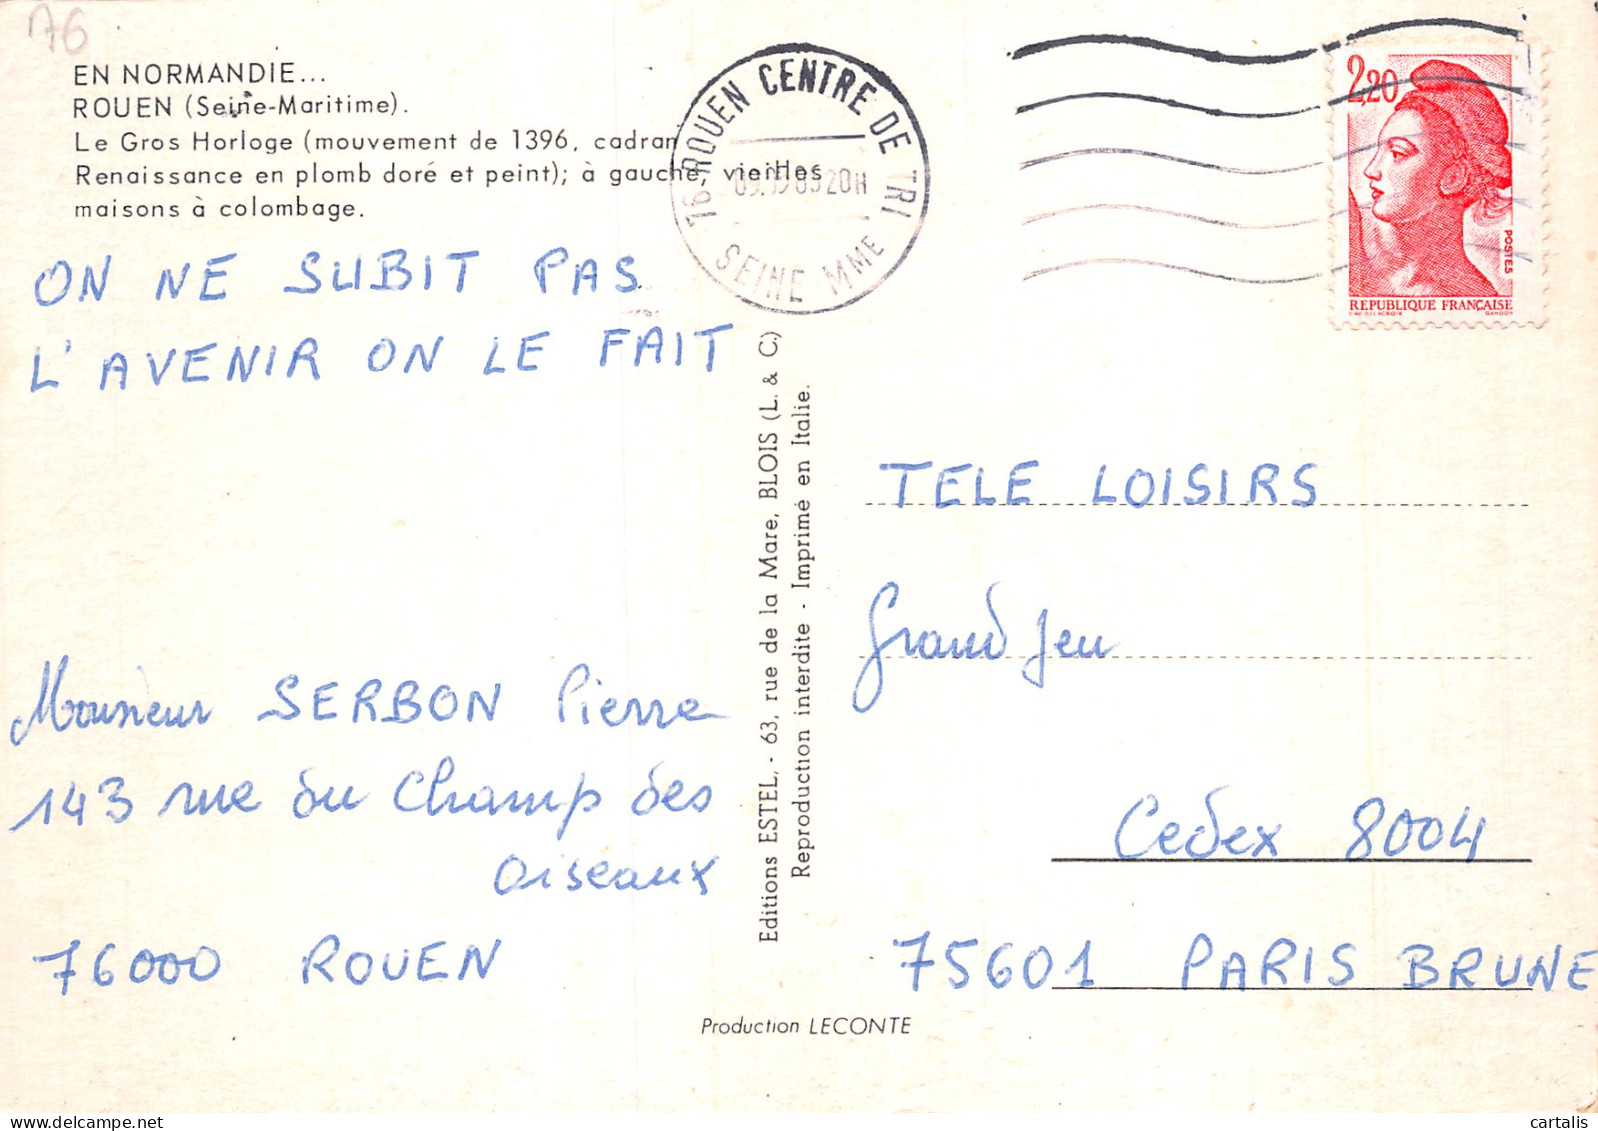 76
EN NORMANDIE...
ROUEN (Seine-Maritime).
Le Gros Horloge (mouvement de 1396, cadran
Renaissance en plomb doré et peint); à gauche, vieilles
maisons à colombage.
ON NE SUBIT PAS
L'AVENIR ON LE FAIT
Monsieur SERBON Pierre
143 rue du Champ des
oiseaux
76000 ROUEN
Editions ESTEL, - 63, rue de la Mare, BLOIS (L. & C)
Reproduction interdite - Imprimé en Italie.
Production LECONTE
76 ROUEN CENTRE DE TRI
20H
SEINE MME
2,20
POSTES
REPUBLIQUE FRANÇAISE
GANDON
TELE LOISIRS
Grand Jeu
Cedex 8004
75601 PARIS BRUNE
cartalis